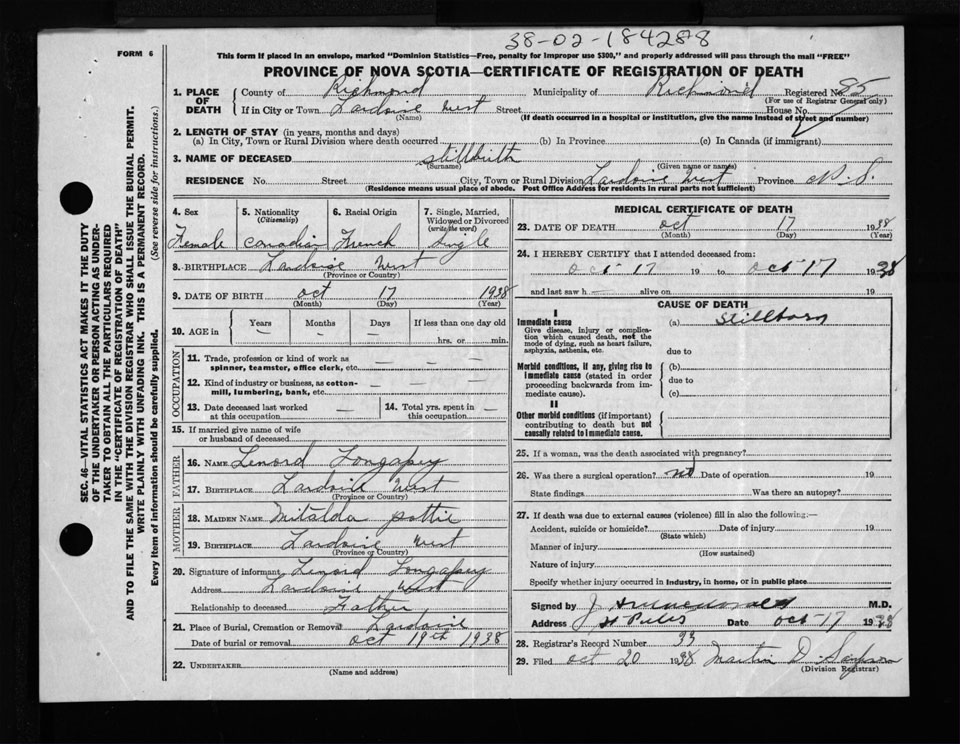 38-02-184288
FORM 6
This form if placed in an envelope, marked "Dominion Statistics—Free, penalty for improper use $300," and properly addressed will pass through the mail "FREE"
PROVINCE OF NOVA SCOTIA—CERTIFICATE OF REGISTRATION OF DEATH
1. PLACE OF DEATH
County of Richmond Municipality of Richmond Registered No. 85
(For use of Registrar General only)
If in City or Town Lardoise West Street House No.
(Name) (If death occurred in a hospital or institution, give the name instead of street and number)
2. LENGTH OF STAY (in years, months and days)
(a) In City, Town or Rural Division where death occurred (b) In Province (c) In Canada (if immigrant)
3. NAME OF DECEASED stillbirth
(Surname) (Given name or names)
RESIDENCE No. Street City, Town or Rural Division Lardoise West Province N.S.
(Residence means usual place of abode. Post Office Address for residents in rural parts not sufficient)
4. Sex 5. Nationality (Citizenship) 6. Racial Origin 7. Single, Married, Widowed or Divorced (write the word)
Female Canadian French Single
8. BIRTHPLACE Lardoise West
(Province or Country)
9. DATE OF BIRTH oct 17 1938
(Month) (Day) (Year)
10. AGE in Years Months Days If less than one day old
hrs. or min.
OCCUPATION
11. Trade, profession or kind of work as spinner, teamster, office clerk, etc. — — —
12. Kind of industry or business, as cotton-mill, lumbering, bank, etc. — — —
13. Date deceased last worked at this occupation — 14. Total yrs. spent in this occupation —
15. If married give name of wife or husband of deceased
FATHER
16. NAME Lenord Longapey
17. BIRTHPLACE Lardoise West
(Province or Country)
MOTHER
18. MAIDEN NAME Mitalda pottie
19. BIRTHPLACE Lardoise West
(Province or Country)
20. Signature of informant Lenord Longapey
Address Lardoise West
Relationship to deceased Father
21. Place of Burial, Cremation or Removal Lardoise
Date of burial or removal oct 19th 1938
22. UNDERTAKER
(Name and address)
MEDICAL CERTIFICATE OF DEATH
23. DATE OF DEATH oct 17 1938
(Month) (Day) (Year)
24. I HEREBY CERTIFY that I attended deceased from:
oct 17 19 to oct 17 1938
and last saw h alive on 19
CAUSE OF DEATH
I
Immediate cause (a) Stillborn
Give disease, injury or complication which caused death, not the mode of dying, such as heart failure, asphyxia, asthenia, etc.
due to
Morbid conditions, if any, giving rise to immediate cause (stated in order proceeding backwards from immediate cause).
(b)
due to
(c)
II
Other morbid conditions (if important) contributing to death but not causally related to immediate cause.
25. If a woman, was the death associated with pregnancy?
26. Was there a surgical operation? no Date of operation 19
State findings Was there an autopsy?
27. If death was due to external causes (violence) fill in also the following:—
Accident, suicide or homicide? Date of injury 19
(State which)
Manner of injury
(How sustained)
Nature of injury
Specify whether injury occurred in industry, in home, or in public place
Signed by J M.D.
Address St Peters Date oct 17 1938
28. Registrar's Record Number 33
29. Filed oct 20 1938 Martin D. Sampson
(Division Registrar)
SEC. 46—VITAL STATISTICS ACT MAKES IT THE DUTY
OF THE UNDERTAKER OR PERSON ACTING AS UNDER-
TAKER TO OBTAIN ALL THE PARTICULARS REQUIRED
IN THE "CERTIFICATE OF REGISTRATION OF DEATH"
AND TO FILE THE SAME WITH THE DIVISION REGISTRAR WHO SHALL ISSUE THE BURIAL PERMIT.
WRITE PLAINLY WITH UNFADING INK. THIS IS A PERMANENT RECORD.
Every item of information should be carefully supplied. (See reverse side for instructions.)